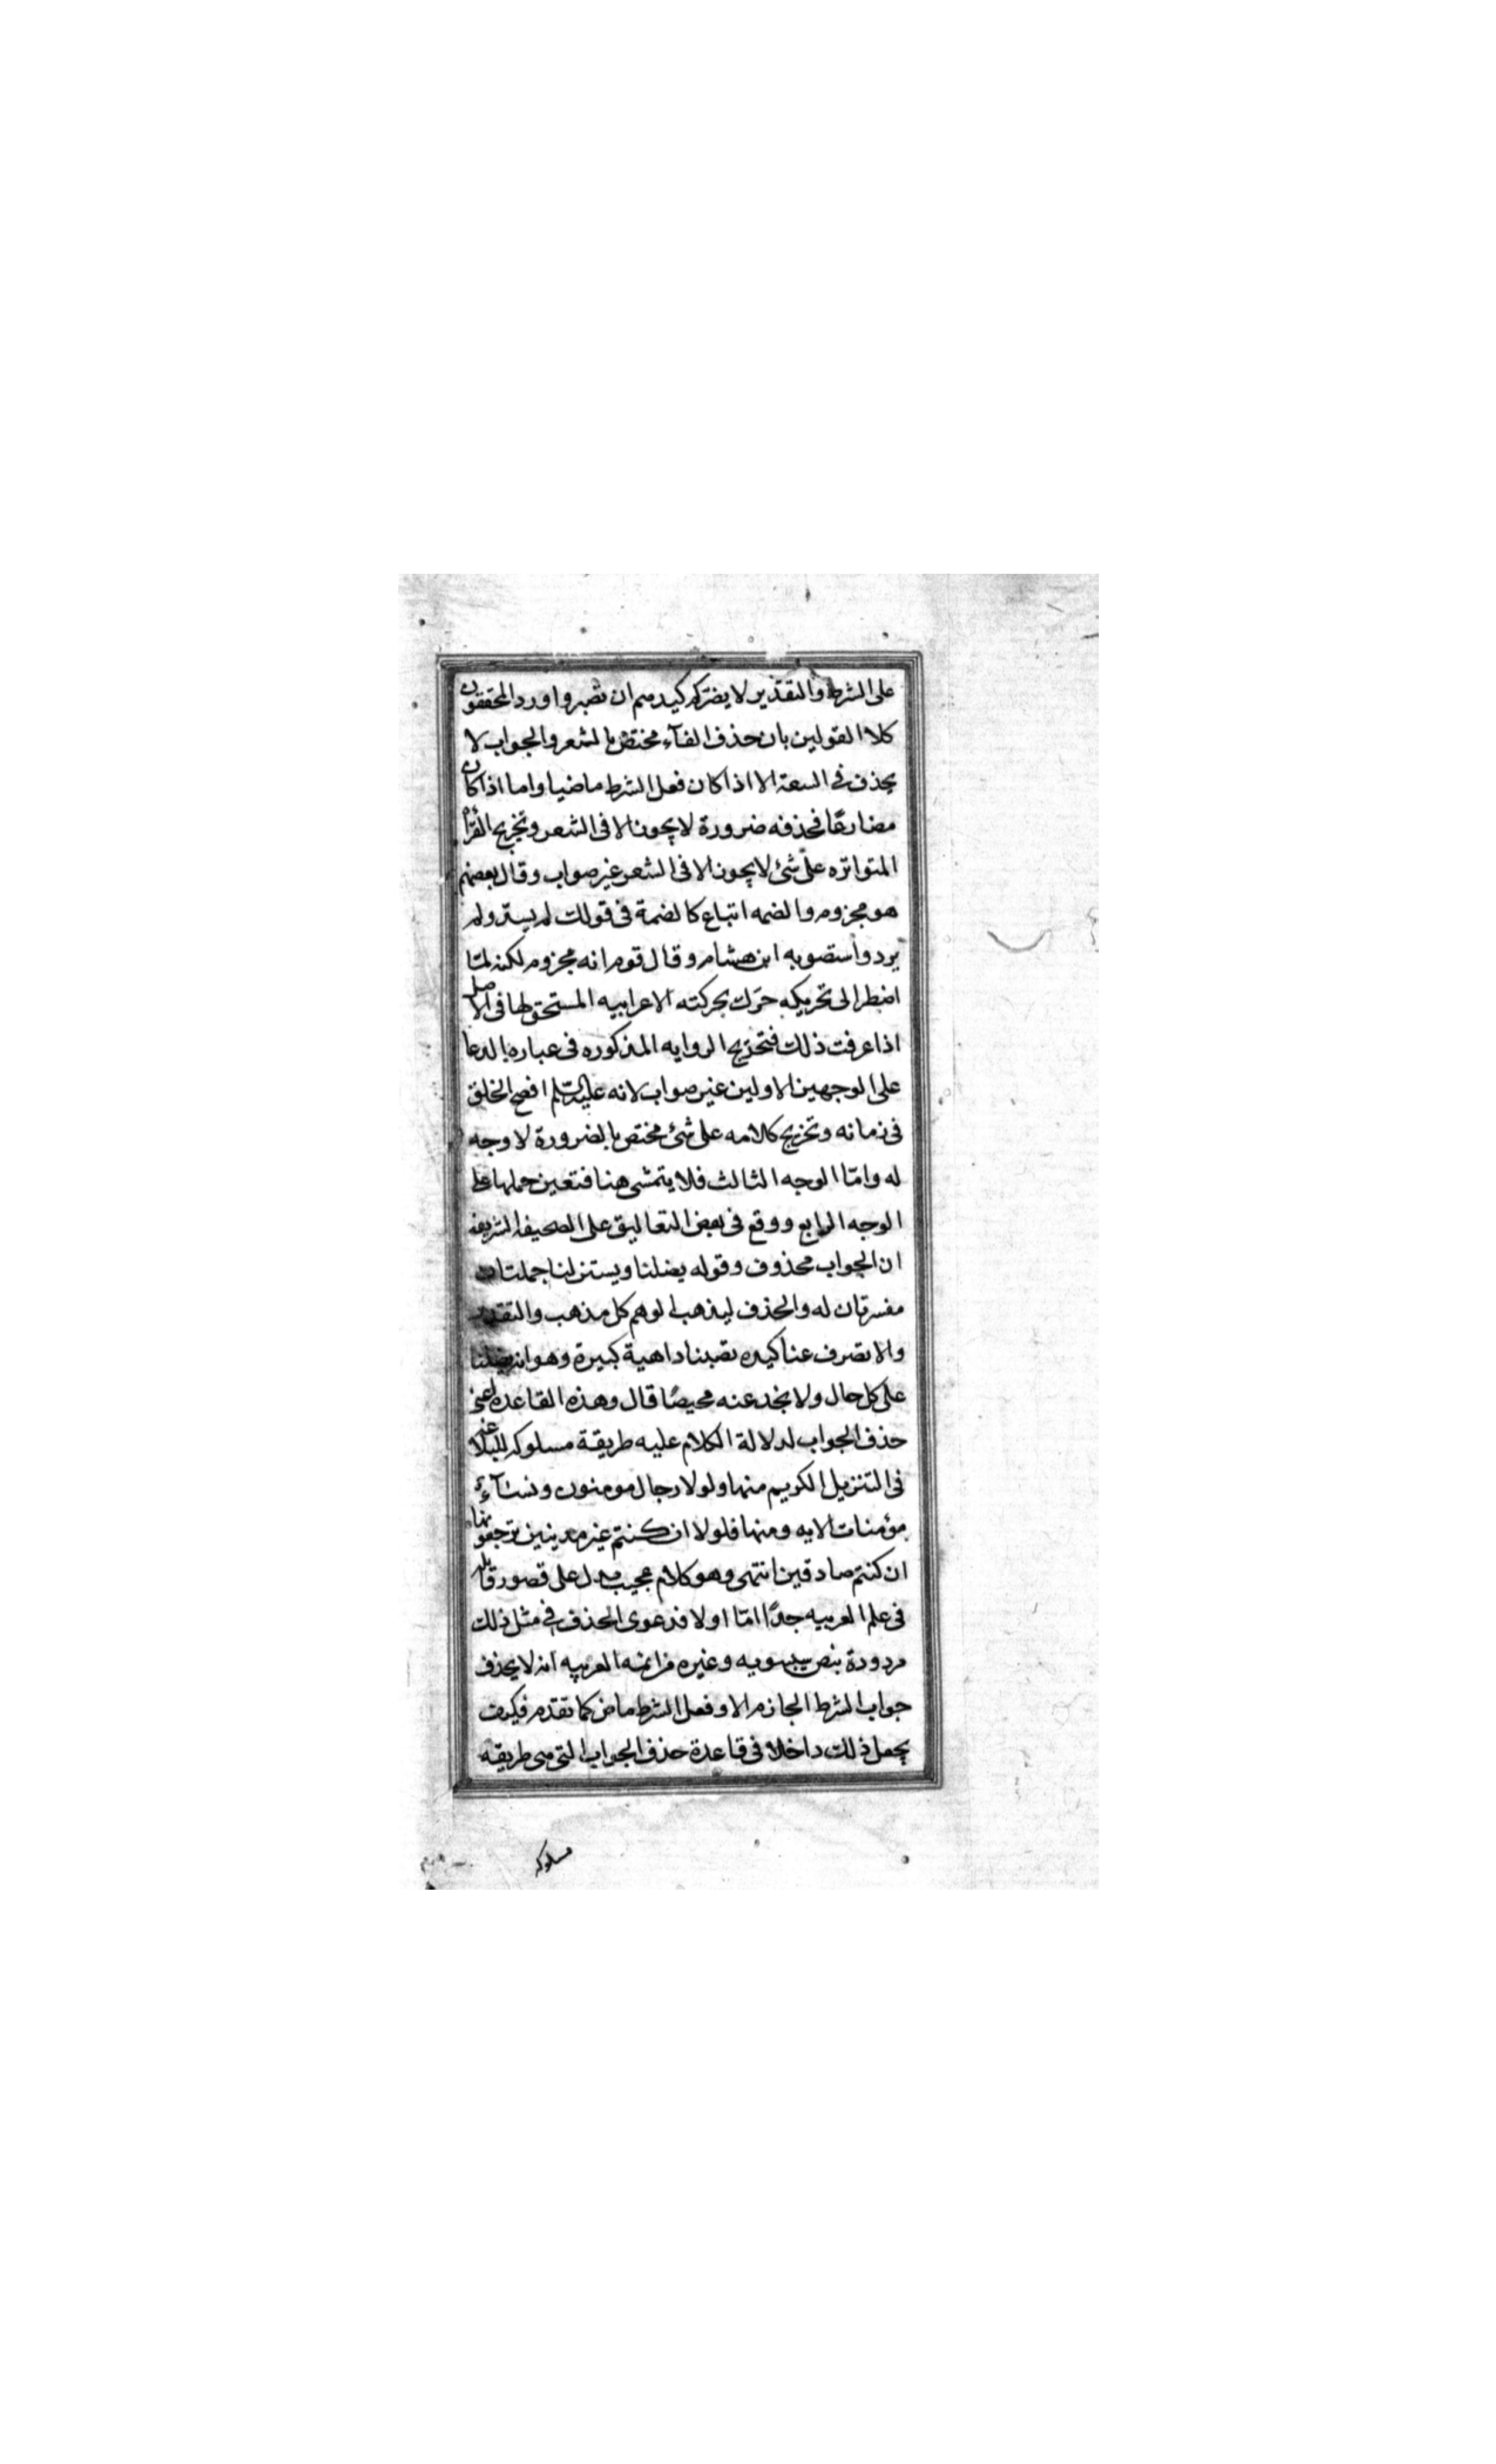 على الشرط والتقدير لا يضركم كيدهم ان تصبروا ورد المحققون
كلا القولين بان حذف الفآء مختص بالشعر والجواب لا
يحذف في السعة الا اذا كان فعل الشرط ماضيا واما اذا كان
مضارعًا فحذفه ضرورة لا يجوز الا فى الشعر وتخريج القرأة
المتواتره على شئ لا يجوز الا فى الشعر غير صواب وقال بعضهم
هو مجزوم والضمه اتباع كالضمة فى قولك لم يسد ولم
يرد واستصوبه ابن هشام وقال قوم انه مجزوم لكنه لمّا
اضطر الى تحريكه حرّك بحركته الاعرابيه المستحق لها فى الاصل
اذا عرفت ذلك فتخريج الروايه المذكوره فى عباره الدعا
على الوجهين الاولين غير صواب لانه عليه السلم افصح الخلق
فى زمانه وتخريج كلامه على شئ مختص بالضرورة لا وجه
له وامّا الوجه الثالث فلا يتمشى هنا فتعين حملها على
الوجه الرابع ووقع فى بعض التعاليق على الصحيفه الشريفه
ان الجواب محذوف وقوله يضلنا ويستزلنا جملتان
مفسرتان له والحذف ليذهب الوهم كل مذهب والتقدير
والا تصرف عنا كيده تصبنا داهية كبيرة وهو انه يضلنا
على كل حال ولا نجد عنه محيصًا قال وهذه القاعده اعنى
حذف الجواب لدلالة الكلام عليه طريقة مسلوكه للبلاغه
فى التنزيل الكريم منها ولولا رجال مومنون ونسآءٌ
مؤمنات الايه ومنها فلولا ان كنتم غير مدينين ترجعونها
ان كنتم صادقين انتهى وهو كلام عجيب يدل على قصور قايله
فى علم العربيه جدًا امّا اولا فدعوى الحذف فى مثل ذلك
مردودة بنص سيبويه وغيره من ائمة العربيه انه لا يحذف
جواب الشرط الجازم الا وفعل الشرط ماض كما تقدم فكيف
يجعل ذلك داخلا فى قاعدة حذف الجواب التى هى طريقه
مسلوكه